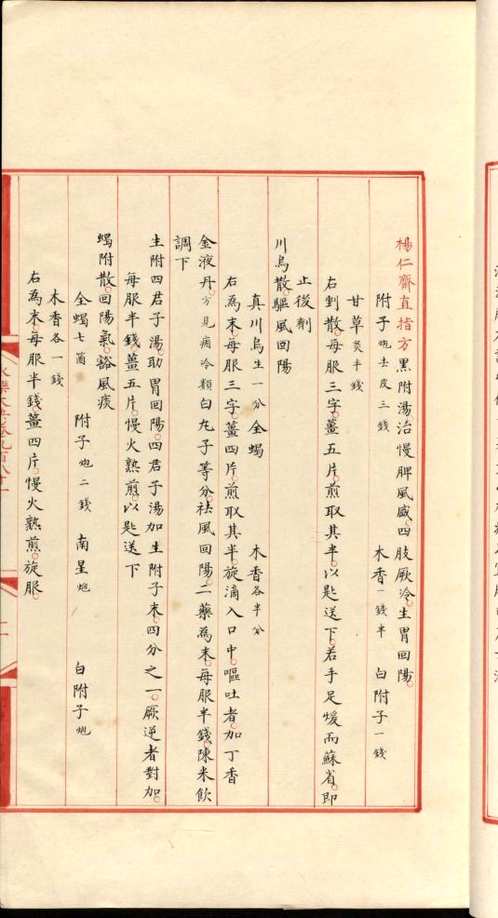 楊仁齋直指方黑附湯治慢脾風盛四肢厥冷生胃回陽
附子炮去皮三錢 木香一錢半 白附子一錢
甘草炙半錢
右剉散每服三字薑五片煎取其半以匙送下若手足煖而蘇省即
止後劑
川烏散驅風回陽
真川烏生一分 全蝎 木香各半分
右為末每服三字薑四片煎取其半旋滴入口中嘔吐者加丁香
金液丹方見痼冷類白丸子等分祛風回陽二藥為末每服半錢陳米飲
調下
生附四君子湯助胃回陽四君子湯加生附子末四分之一厥逆者對加
每服半錢薑五片慢火熟煎以匙送下
蝎附散回陽氣豁風痰
全蝎七箇 附子炮二錢 南星炮 白附子炮
木香各一錢
右為末每服半錢薑四片慢火熟煎旋服
永樂大典卷九百八十一